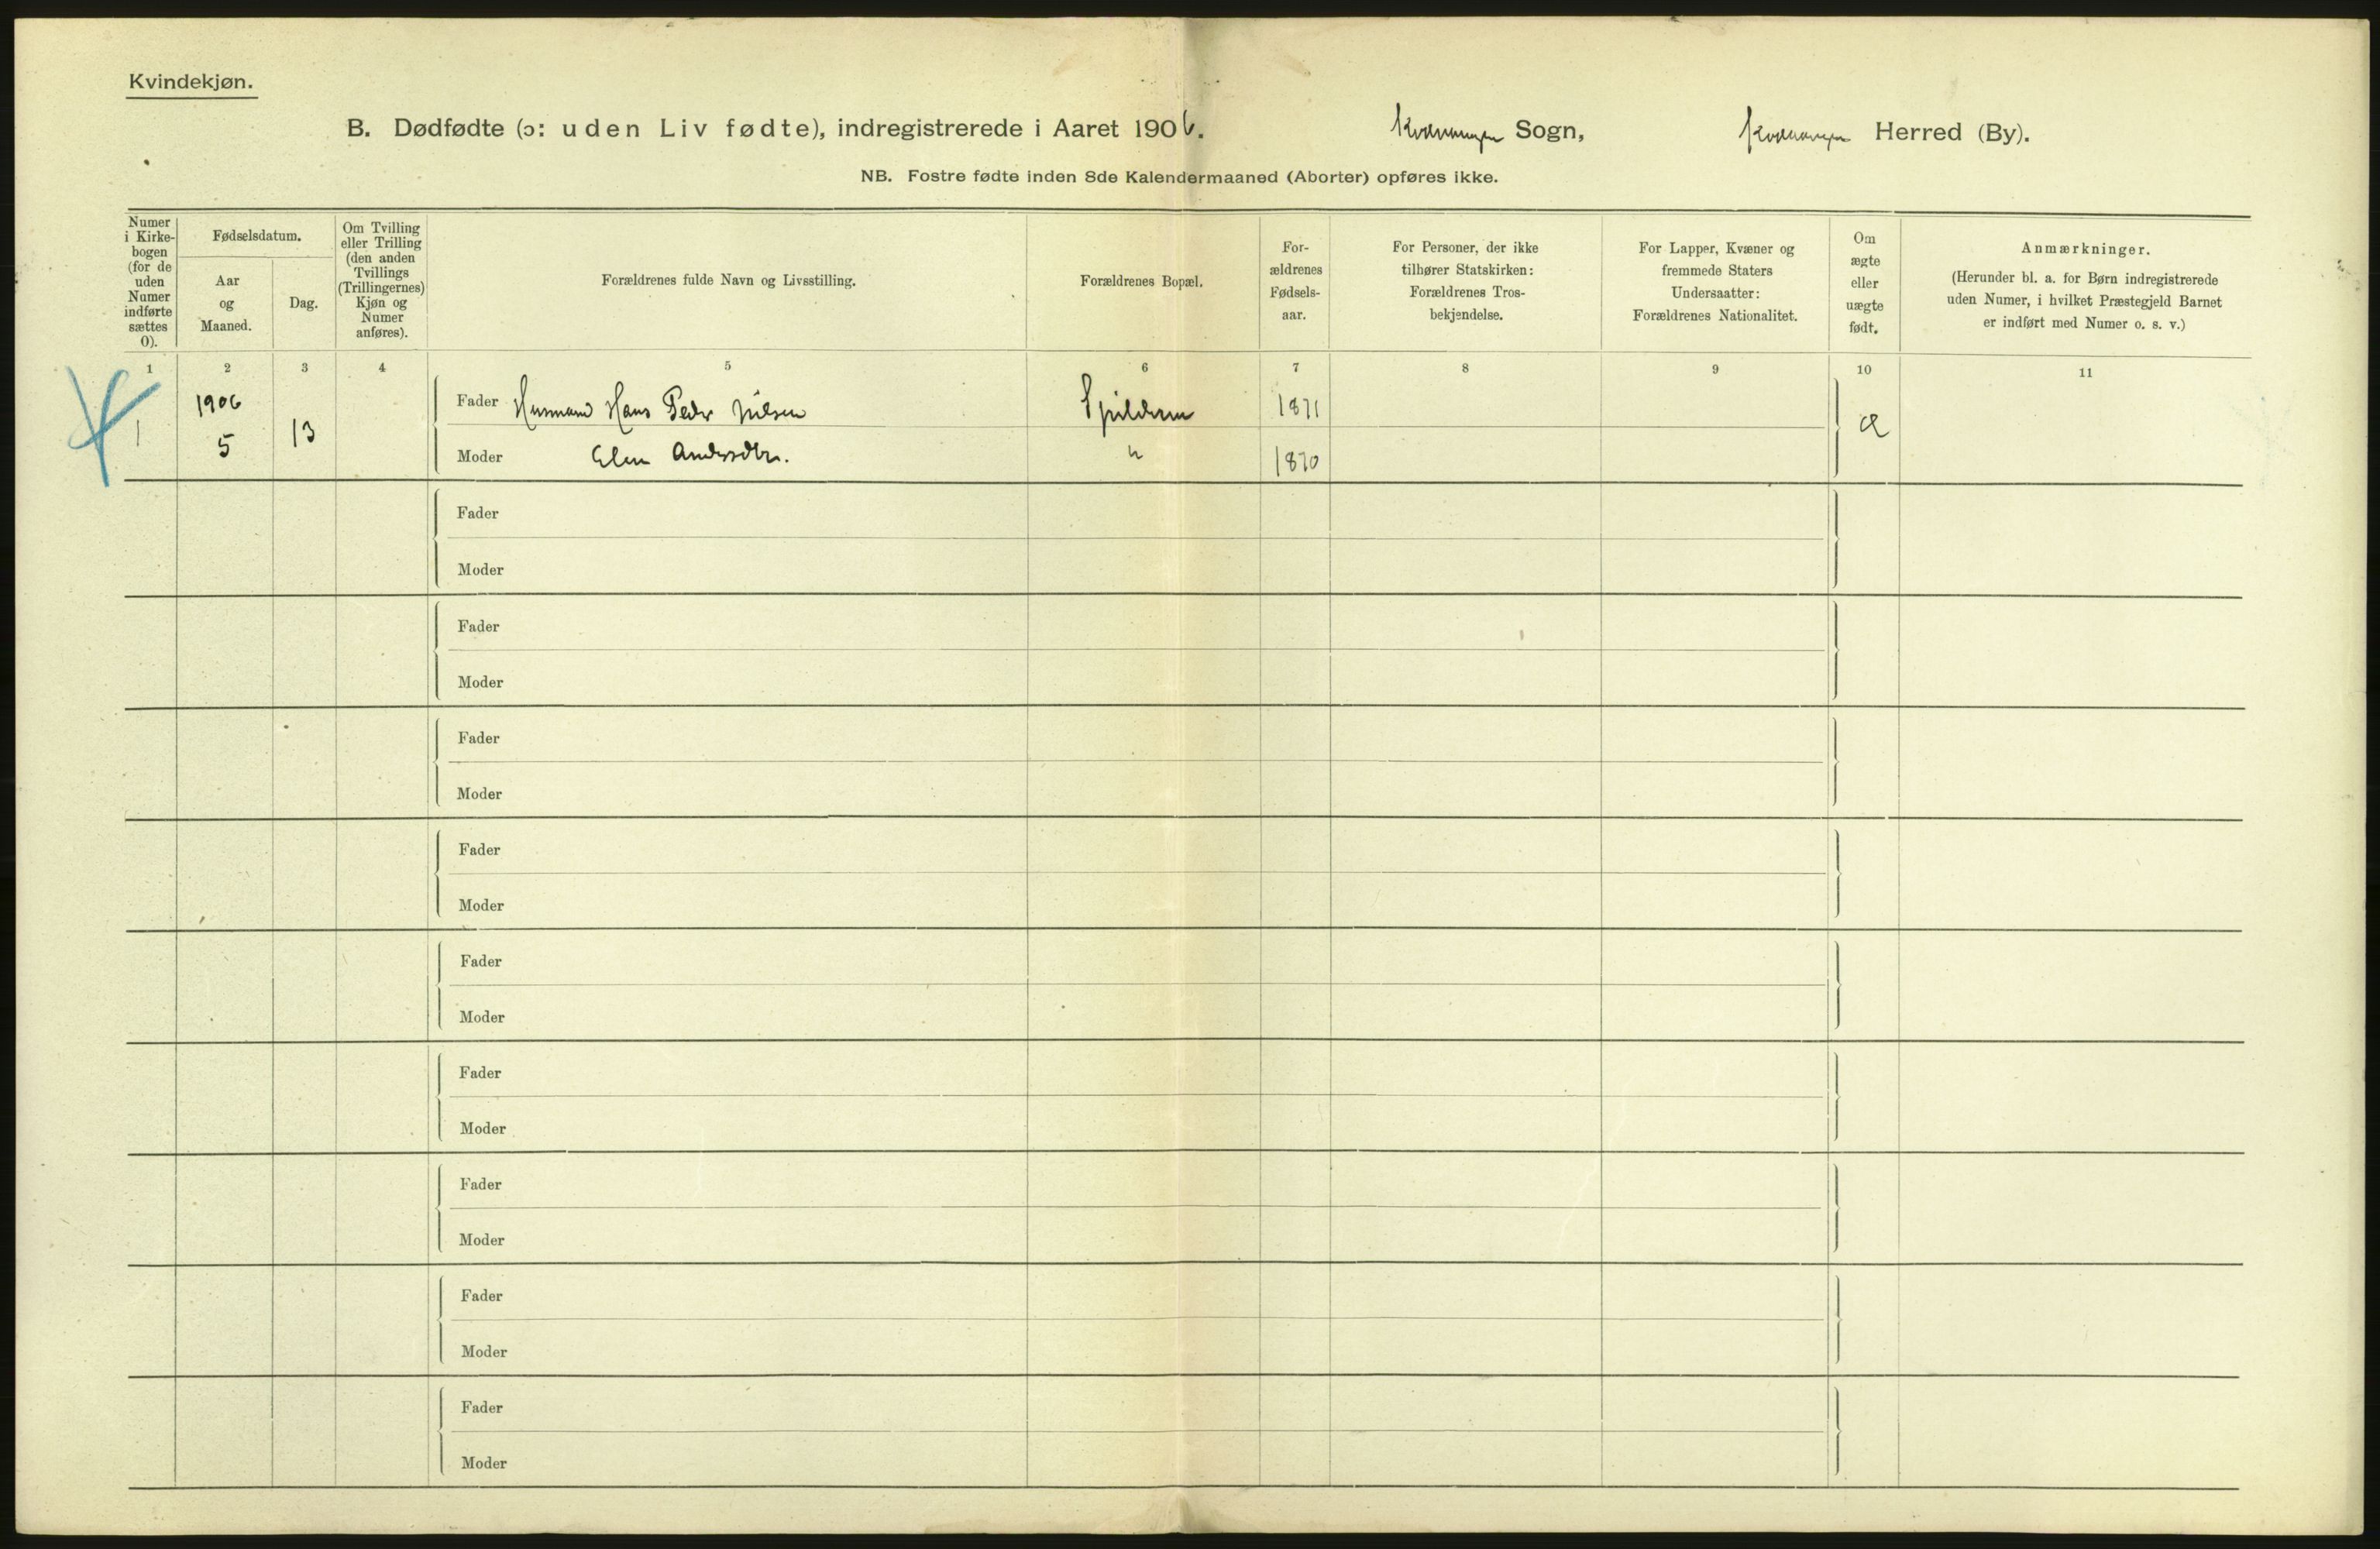 Kvindekjøn.
B. Dødfødte (ɔ: uden Liv fødte), indregistrerede i Aaret 1906. Kvænangen Sogn, Kvænangen Herred (By).
NB. Fostre fødte inden 8de Kalendermaaned (Aborter) opføres ikke.
Numer
i Kirke-
bogen
(for de
uden
Numer
indførte
sættes
0).
Fødselsdatum.
Aar
og
Maaned.
Dag.
Om Tvilling
eller Trilling
(den anden
Tvillings
(Trillingernes)
Kjøn og
Numer
anføres).
Forældrenes fulde Navn og Livsstilling.
Forældrenes Bopæl.
For-
ældrenes
Fødsels-
aar.
For Personer, der ikke
tilhører Statskirken:
Forældrenes Tros-
bekjendelse.
For Lapper, Kvæner og
fremmede Staters
Undersaatter:
Forældrenes Nationalitet.
Om
ægte
eller
uægte
født.
Anmærkninger.
(Herunder bl. a. for Børn indregistrerede
uden Numer, i hvilket Præstegjeld Barnet
er indført med Numer o. s. v.)
1 2 3 4 5 6 7 8 9 10 11
1 1906 5 13
Fader Husmand Hans Peder Nilsen Spilderen 1871
Moder Elen Andersdtr. " 1870
Æ
Fader
Moder
Fader
Moder
Fader
Moder
Fader
Moder
Fader
Moder
Fader
Moder
Fader
Moder
Fader
Moder
Fader
Moder